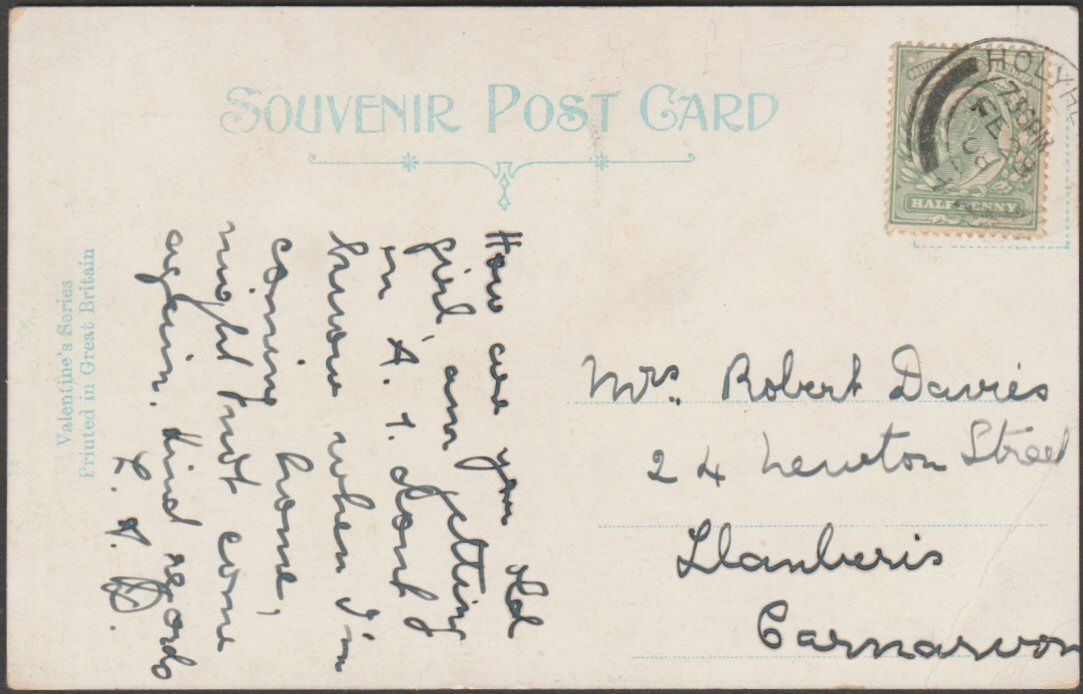 SOUVENIR POST CARD
HOLYHE
7.30PM
FE
HALFPENNY
Valentine's Series
Printed in Great Britain
How are you old
girl am getting
on A. 1. dont
know when I'm
coming home,
might not come
again. kind regards
Mrs. Robert Davies
24 Newton Street
Llanberis
Carnarvon